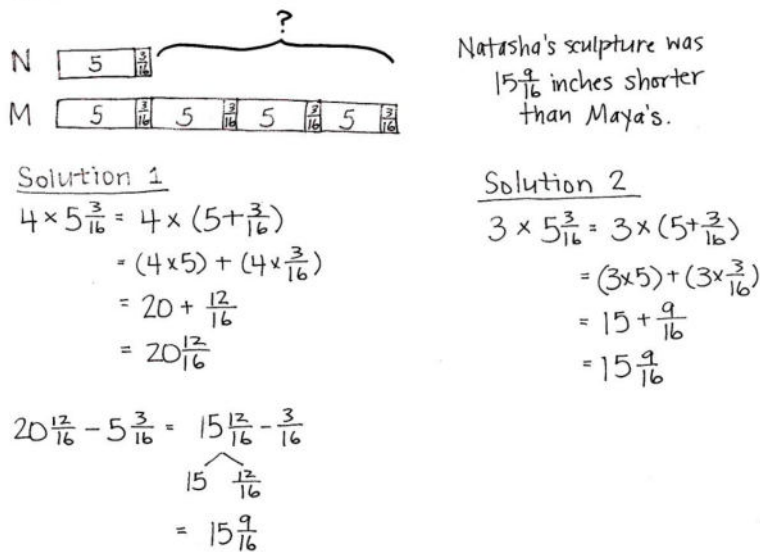 ?
N 5 3/16
M 5 3/16 5 3/16 5 3/16 5 3/16
Natasha's sculpture was
15 9/16 inches shorter
than Maya's.
Solution 1
4 × 5 3/16 = 4 × (5 + 3/16)
= (4×5) + (4× 3/16)
= 20 + 12/16
= 20 12/16
20 12/16 − 5 3/16 = 15 12/16 − 3/16
15 12/16
= 15 9/16
Solution 2
3 × 5 3/16 = 3 × (5 + 3/16)
= (3×5) + (3× 3/16)
= 15 + 9/16
= 15 9/16